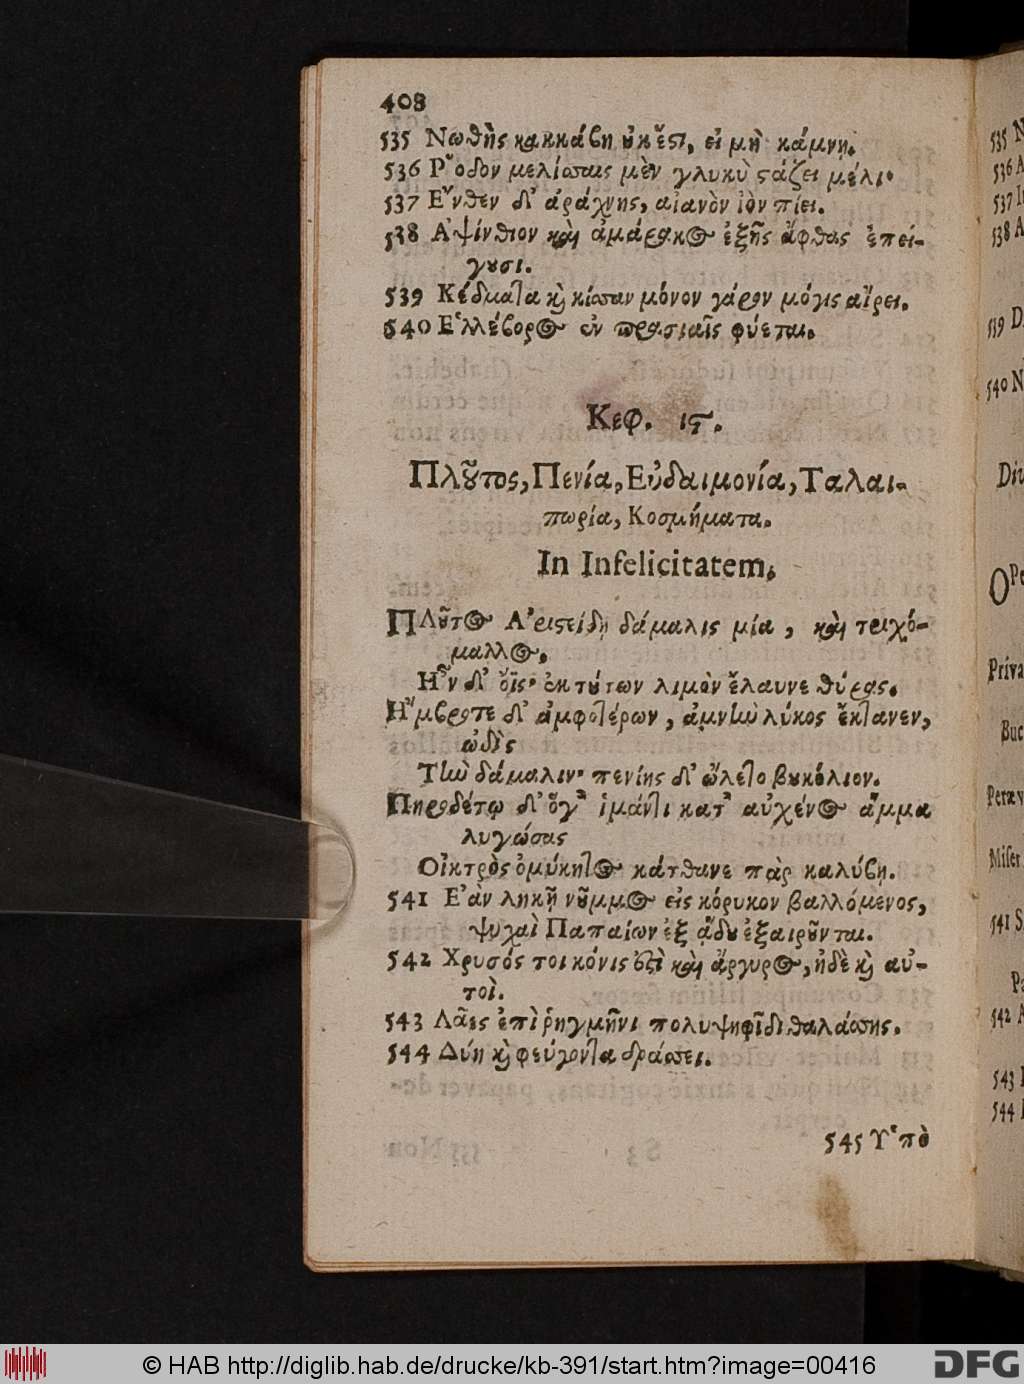 408
535 Νωθὴς κακκάβη ὐκ ἔστ, εἰ μὴ κάμνη.
536 Ρ῎οδον μελίσσαις μὲν γλυκὺ στάζει μέλι·
537 Ε῎νθεν δ' ἀράχνης, αἰανὸν ἰὸν πίει.
538 Α᾿ψίνθιον καὶ ἀμάρακος ἐξῆς ἄφθας ἐπεί-
γουσι.
539 Κέδματα κὶ κίσσαν μόνον γάρον μόγις αἴρει.
540 Ε῾λλέβορος ἐν πρασιαῖς φύεται.
Κεφ. ιϛ.
Πλοῦτος, Πενία, Εὐδαιμονία, Ταλαι-
πωρία, Κοσμήματα.
In Infelicitatem.
ΠΛοῦτος Α᾿ριστείδῃ δάμαλις μία, καὶ τριχό-
μαλλος.
Η῏ν δ' ὄϊς· ἐκ τούτων λιμὸν ἔλαυνε θύρας.
Η῎μβροτε δ' ἀμφοτέρων, ἀμνὴν λύκος ἔκτανεν,
ὠδὶς
Τὴν δάμαλιν· πενίης δ' ὤλετο βουκόλιον.
Πηροδέτῳ δ' ὅγ' ἱμάντι κατ' αὐχένος ἅμμα
λυγώσας
Οἰκτρὸς ὀμύκητος κάτθανε πὰρ καλύβῃ.
541 Ε᾿ὰν ληκῇ νοῦμμος εἰς κόρυκον βαλλόμενος,
ψυχαὶ Παπαίων ἐξ ᾅδου ἐξαιροῦνται.
542 Χρυσός τοι κόνις ἐστὶ καὶ ἄργυρος, ἠδὲ κὶ αὐ-
τοὶ.
543 Λᾶες ἐπὶ ῥηγμῆνι πολυψηφῖδι θαλάσσης.
544 Δύη κὶ φεύγοντα δράσσει.
545 Υ῾πὸ
© HAB http://diglib.hab.de/drucke/kb-391/start.htm?image=00416
DFG